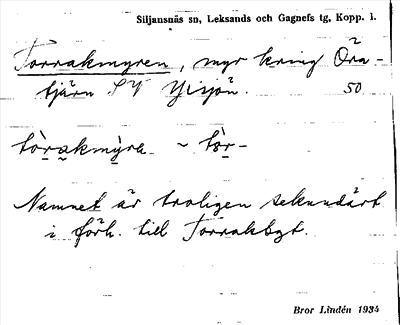 Siljansnäs sn, Leksands och Gagnefs tg, Kopp. l.
Torrakmyren, myr kring Öra-
tjärn SV Yisjön. 50
tòrakmỳra ~ tòr-
Namnet är troligen sekundärt
i förh. till Torrakbgt.
Bror Lindén 1934